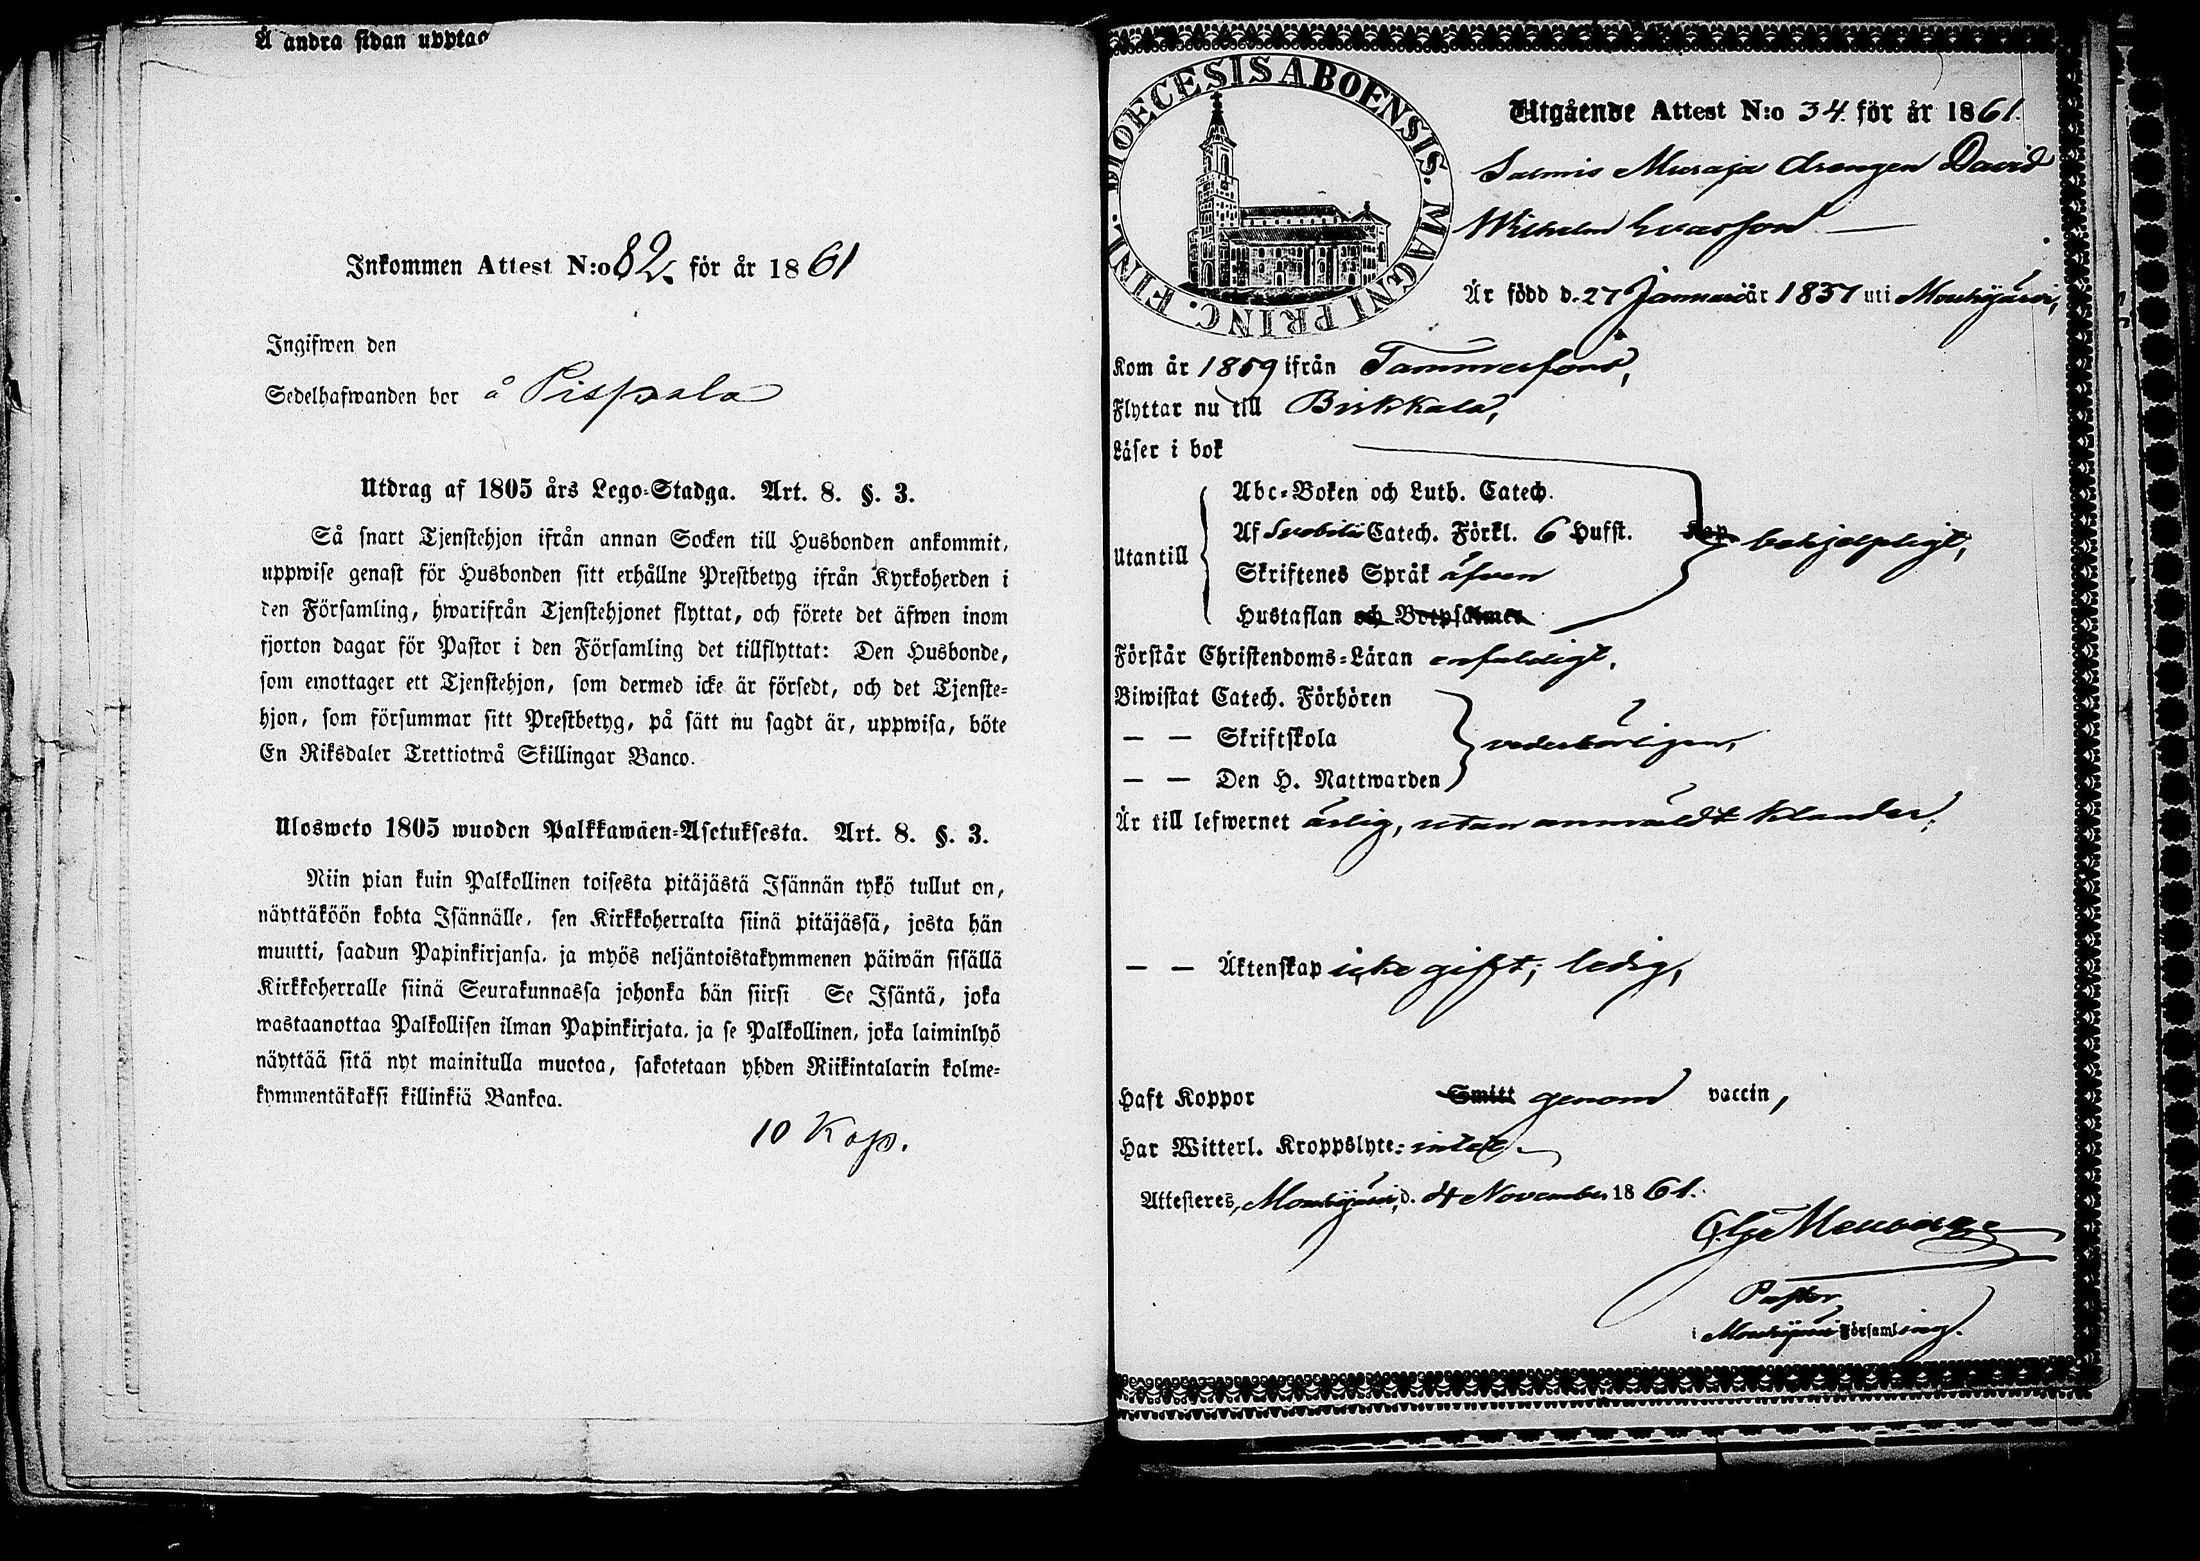 Å andra sidan upptag
Inkommen Attest N:o 82. för år 1861
Ingifwen den
Sedelhafwanden bor å Pispala
Utdrag af 1805 års Lego-Stadga. Art. 8. §. 3.
Så snart Tjenstehjon ifrån annan Socken till Husbonden ankommit,
uppwise genast för Husbonden sitt erhållne Prestbetyg ifrån Kyrkoherden i
den Församling, hwarifrån Tjenstehjonet flyttat, och förete det äfwen inom
fjorton dagar för Pastor i den Församling det tillflyttat: Den Husbonde,
som emottager ett Tjenstehjon, som dermed icke är försedt, och det Tjenste-
hjon, som försummar sitt Prestbetyg, på sätt nu sagdt är, uppwisa, böte
En Riksdaler Trettiotwå Skillingar Banco.
Ulosweto 1805 wuoden Palkkawäen-Asetuksesta. Art. 8. §. 3.
Niin pian kuin Palkollinen toisesta pitäjästä Isännän tykö tullut on,
näyttäköön kohta Isännälle, sen Kirkkoherralta siinä pitäjässä, josta hän
muutti, saadun Papinkirjansa, ja myös neljäntoistakymmenen päiwän sisällä
Kirkkoherralle siinä Seurakunnassa johonka hän siirsi Se Isäntä, joka
wastaanottaa Palkollisen ilman Papinkirjata, ja se Palkollinen, joka laiminlyö
näyttää sitä nyt mainitulla muotoa, sakotetaan yhden Riikintalarin kolme-
kymmentäkaksi killinkiä Bankoa.
10 Kop.
DIOECESIS ABOENSIS. MAGNI PRINC. FINL.
Utgående Attest N:o 34. för år 1861.
Salmis Muraja drengen David
Wilhelm Evasson
Är född d. 27 Januarii år 1837 uti Mouhijärvi,
Kom år 1859 ifrån Tammerfors,
Flyttar nu till Birkkala,
Läser i bok
Utantill
Abc-Boken och Luth. Catech.
Af Svebilii Catech. Förkl. 6 Hufst. Kap. behjelpligt,
Skriftenes Språk äfven
Hustaflan och Botpsalmer
Förstår Christendoms-Läran enfaldigt,
Biwistat Catech. Förhören
— — Skriftskola vederbörligen,
— — Den H. Nattwarden
Är till lefwernet ärlig, utan anmäldt klander;
— — Äktenskap icke gift; ledig,
Haft Koppor Smitt genom vaccin,
Har Witterl. Kroppslyte: intet.
Attesteres, Mouhijärvi, d. 4 November 1861.
Pastor
i Mouhijärvi Församling.